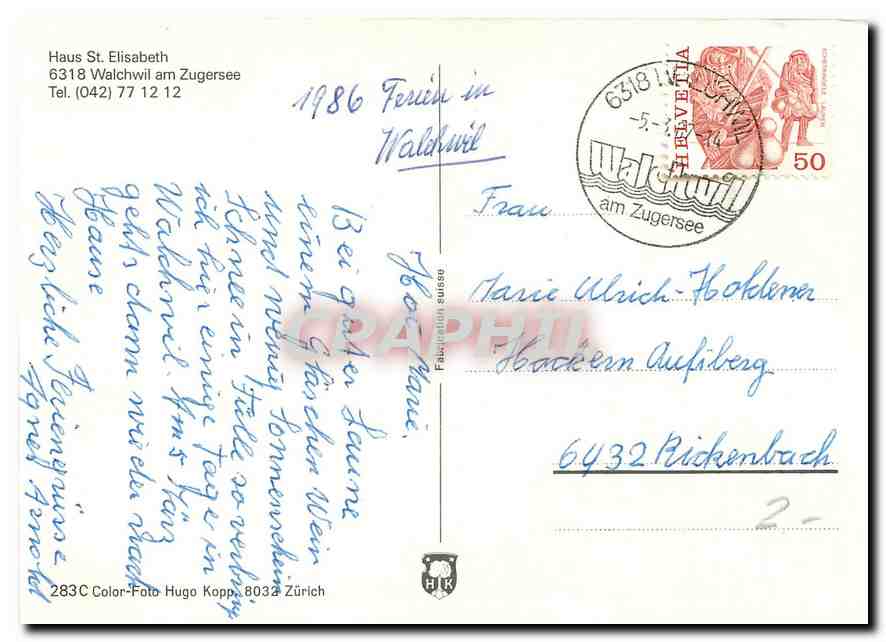 Haus St. Elisabeth
6318 Walchwil am Zugersee
Tel. (042) 77 12 12
1986 Ferien in
Walchwil
Hoi Marie.
Bei guter Laune
einem Gläschen Wein
und wenig Sonnenschein
Schnee in Fülle so verbring
ich hier einige Tage in
Walchwil. Am 5 März
gehts dann wieder nach
Hause
Herzliche Feriengrüsse
Agnes Arnold
283C Color-Foto Hugo Kopp, 8032 Zürich
Fabrication suisse
H K
6318 WALCHWIL
-5.-3.87-14
Walchwil
am Zugersee
HELVETIA
50
Frau
Marie Ulrich-Holdener
Hackern Aufiberg
6432 Rickenbach
2-
CPAPHIL